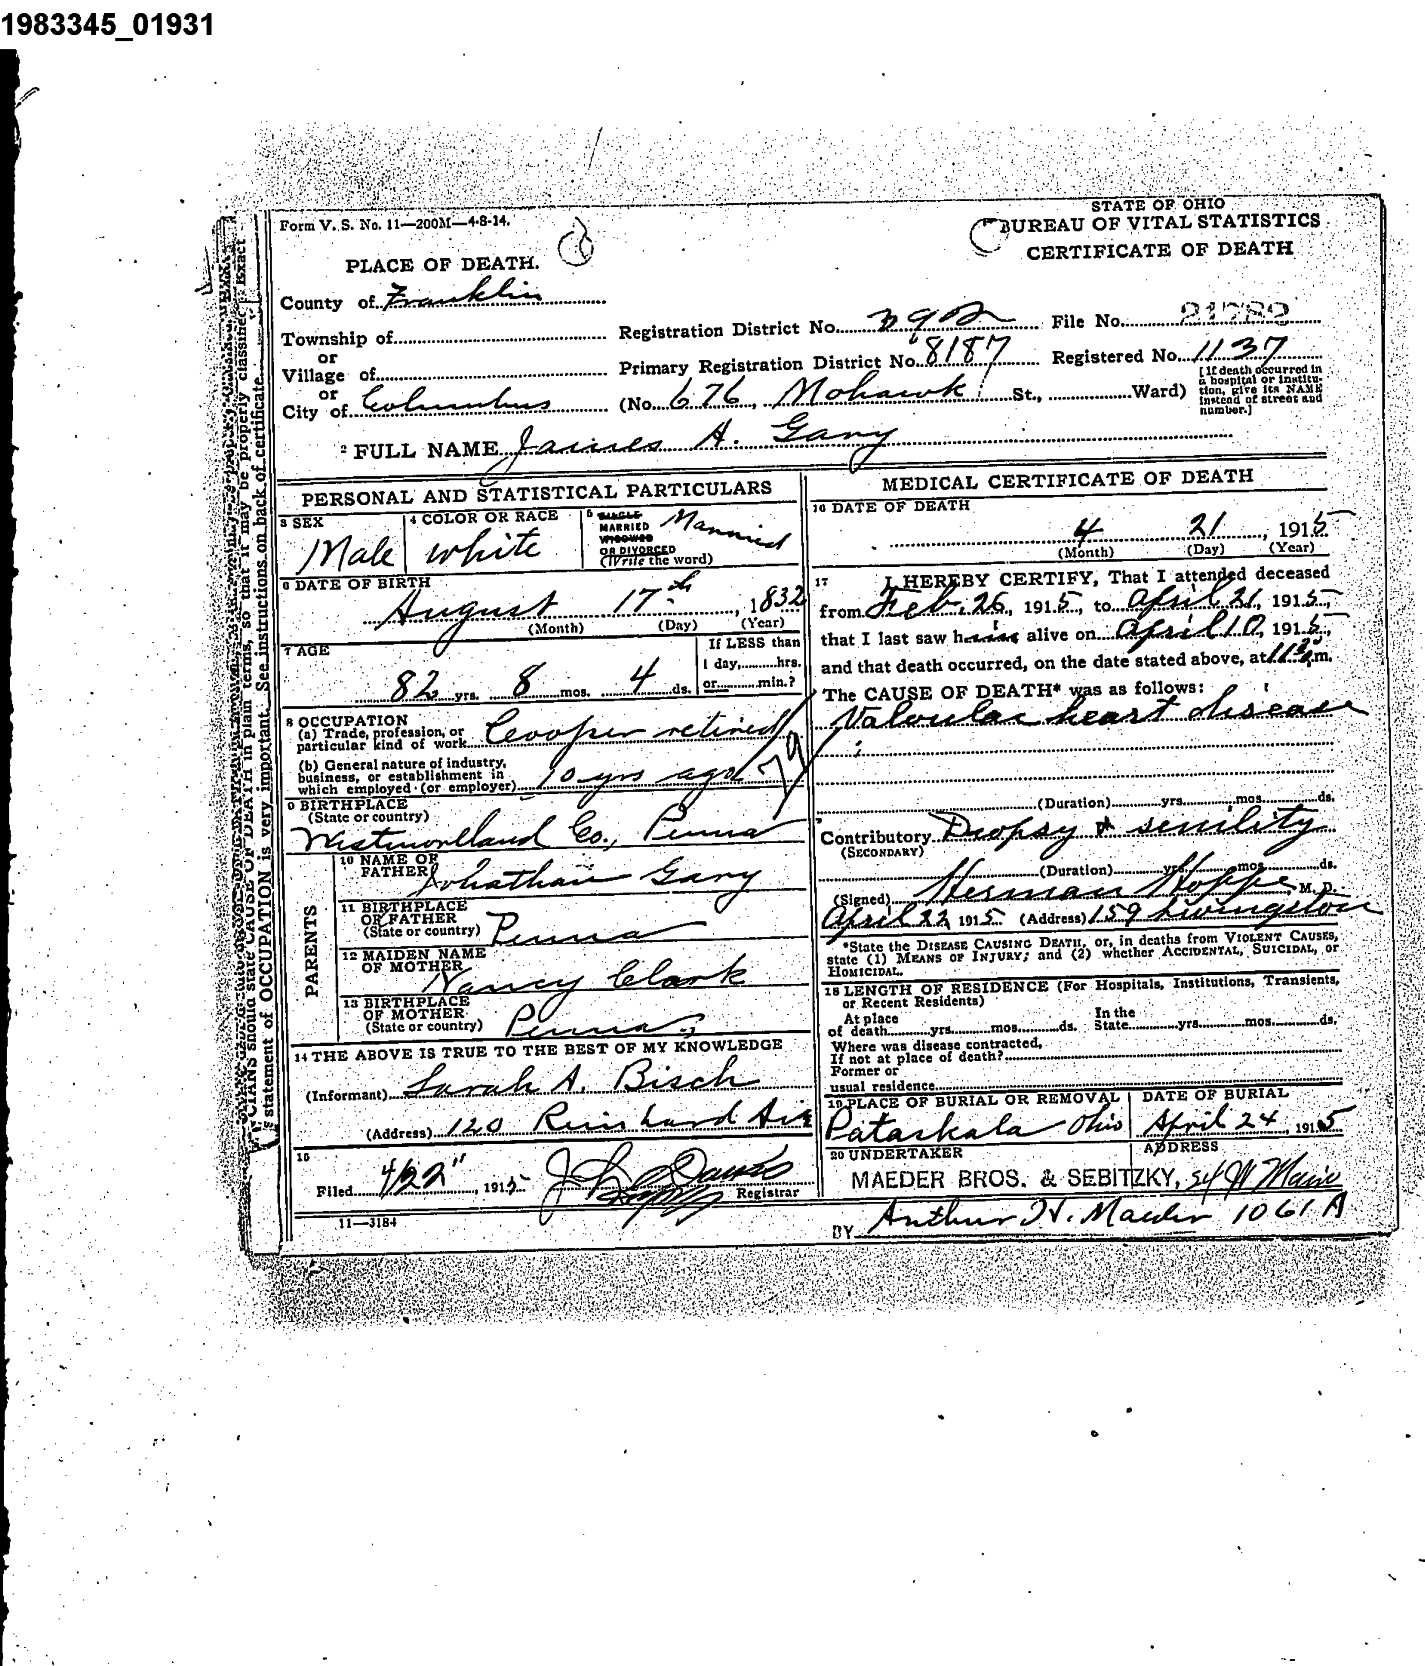 1983345_01931
Form V. S. No. 11—200M—4-8-14.
STATE OF OHIO
BUREAU OF VITAL STATISTICS
CERTIFICATE OF DEATH
PLACE OF DEATH.
County of Franklin
Township of
or
Village of
or
City of Columbus
Registration District No. 392 File No. 21782
Primary Registration District No. 8187 Registered No. 1137
(No. 676, Mohawk St., Ward)
[If death occurred in
a hospital or institu-
tion, give its NAME
instead of street and
number.]
2 FULL NAME James A. Gary
PERSONAL AND STATISTICAL PARTICULARS
3 SEX
Male
4 COLOR OR RACE
white
5 SINGLE
MARRIED
WIDOWED
OR DIVORCED
(Write the word)
Married
6 DATE OF BIRTH
August 17th, 1832
(Month) (Day) (Year)
7 AGE
82 yrs. 8 mos. 4 ds.
If LESS than
1 day, hrs.
or min.?
8 OCCUPATION
(a) Trade, profession, or
particular kind of work Cooper retired
(b) General nature of industry,
business, or establishment in
which employed (or employer) 10 yrs ago
79
9 BIRTHPLACE
(State or country)
Westmorlland Co., Penna
PARENTS
10 NAME OF
FATHER Johathan Gary
11 BIRTHPLACE
OF FATHER
(State or country) Penna
12 MAIDEN NAME
OF MOTHER Nancy Clark
13 BIRTHPLACE
OF MOTHER
(State or country) Penna
14 THE ABOVE IS TRUE TO THE BEST OF MY KNOWLEDGE
(Informant) Sarah A. Bisch
(Address) 120 Reinhard Ave
15
Filed 4/22", 1915 Registrar
11—3184
MEDICAL CERTIFICATE OF DEATH
16 DATE OF DEATH
4 21, 1915
(Month) (Day) (Year)
17 I HEREBY CERTIFY, That I attended deceased
from Feb, 26, 1915, to April 21, 1915,
that I last saw him alive on April 10, 1915,
and that death occurred, on the date stated above, at 11 30 m.
The CAUSE OF DEATH* was as follows:
Valvular heart disease
(Duration) yrs. mos. ds.
Contributory Dropsy & senility
(SECONDARY)
(Duration) yrs. mos. ds.
(Signed) Herman Hoppe, M. D.
April 22, 1915 (Address) 159 Livingston
*State the DISEASE CAUSING DEATH, or, in deaths from VIOLENT CAUSES,
state (1) MEANS OF INJURY; and (2) whether ACCIDENTAL, SUICIDAL, or
HOMICIDAL.
18 LENGTH OF RESIDENCE (For Hospitals, Institutions, Transients,
or Recent Residents)
At place
of death yrs. mos. ds.
In the
State yrs. mos. ds.
Where was disease contracted,
If not at place of death?
Former or
usual residence
19 PLACE OF BURIAL OR REMOVAL
Pataskala Ohio
DATE OF BURIAL
April 24, 1915
20 UNDERTAKER
ADDRESS
MAEDER BROS. & SEBITZKY, 54 W Main
BY Arthur H. Maeder 1061 A